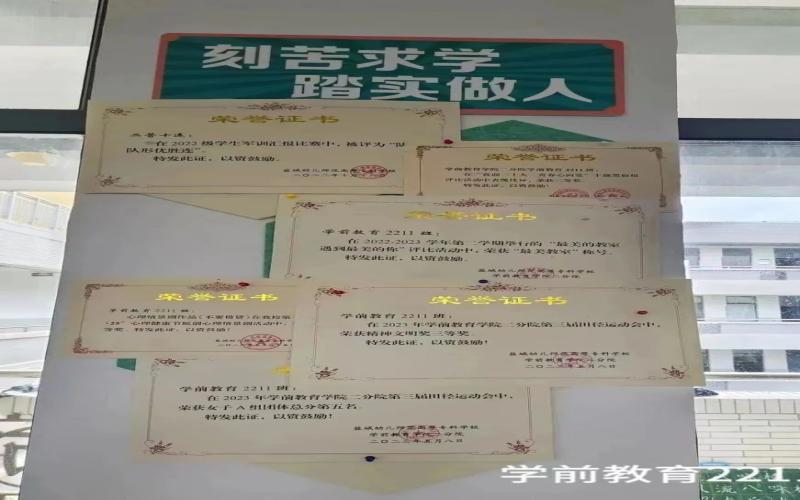 刻苦求学
踏实做人
荣誉证书
在2022级学生军训汇报比赛中，被评为“队
队形优胜连”。
特发此证，以资鼓励。
荣誉证书
学前教育学院二分院学前教育2211班：
特发此证，以资鼓励！
荣誉证书
学前教育2211班：
在2022-2023学年第二学期举行的“最美的教室
遇到最美的你”评比活动中，荣获“最美教室”称号。
特发此证，以资鼓励。
盐城幼儿师范高等专科学校
学前教育学院二分院
荣誉证书
学前教育2211班：
心理情景剧作品《不要借贷》在我校第
心理健康节校园心理情景剧活动中，
等奖。特发此证，以资鼓励！
荣誉证书
学前教育2211班：
在2023年学前教育学院二分院第三届田径运动会中，
荣获精神文明奖三等奖。
特发此证，以资鼓励！
盐城幼儿师范高等专科学校
学前教育学院二分院
二〇二三年五月八日
学前教育2211班：
在2023年学前教育学院二分院第三届田径运动会中，
荣获女子A组团体总分第五名。
特发此证，以资鼓励！
盐城幼儿师范高等专科学校
学前教育学院二分院
二〇二三年五月八日
学前教育221